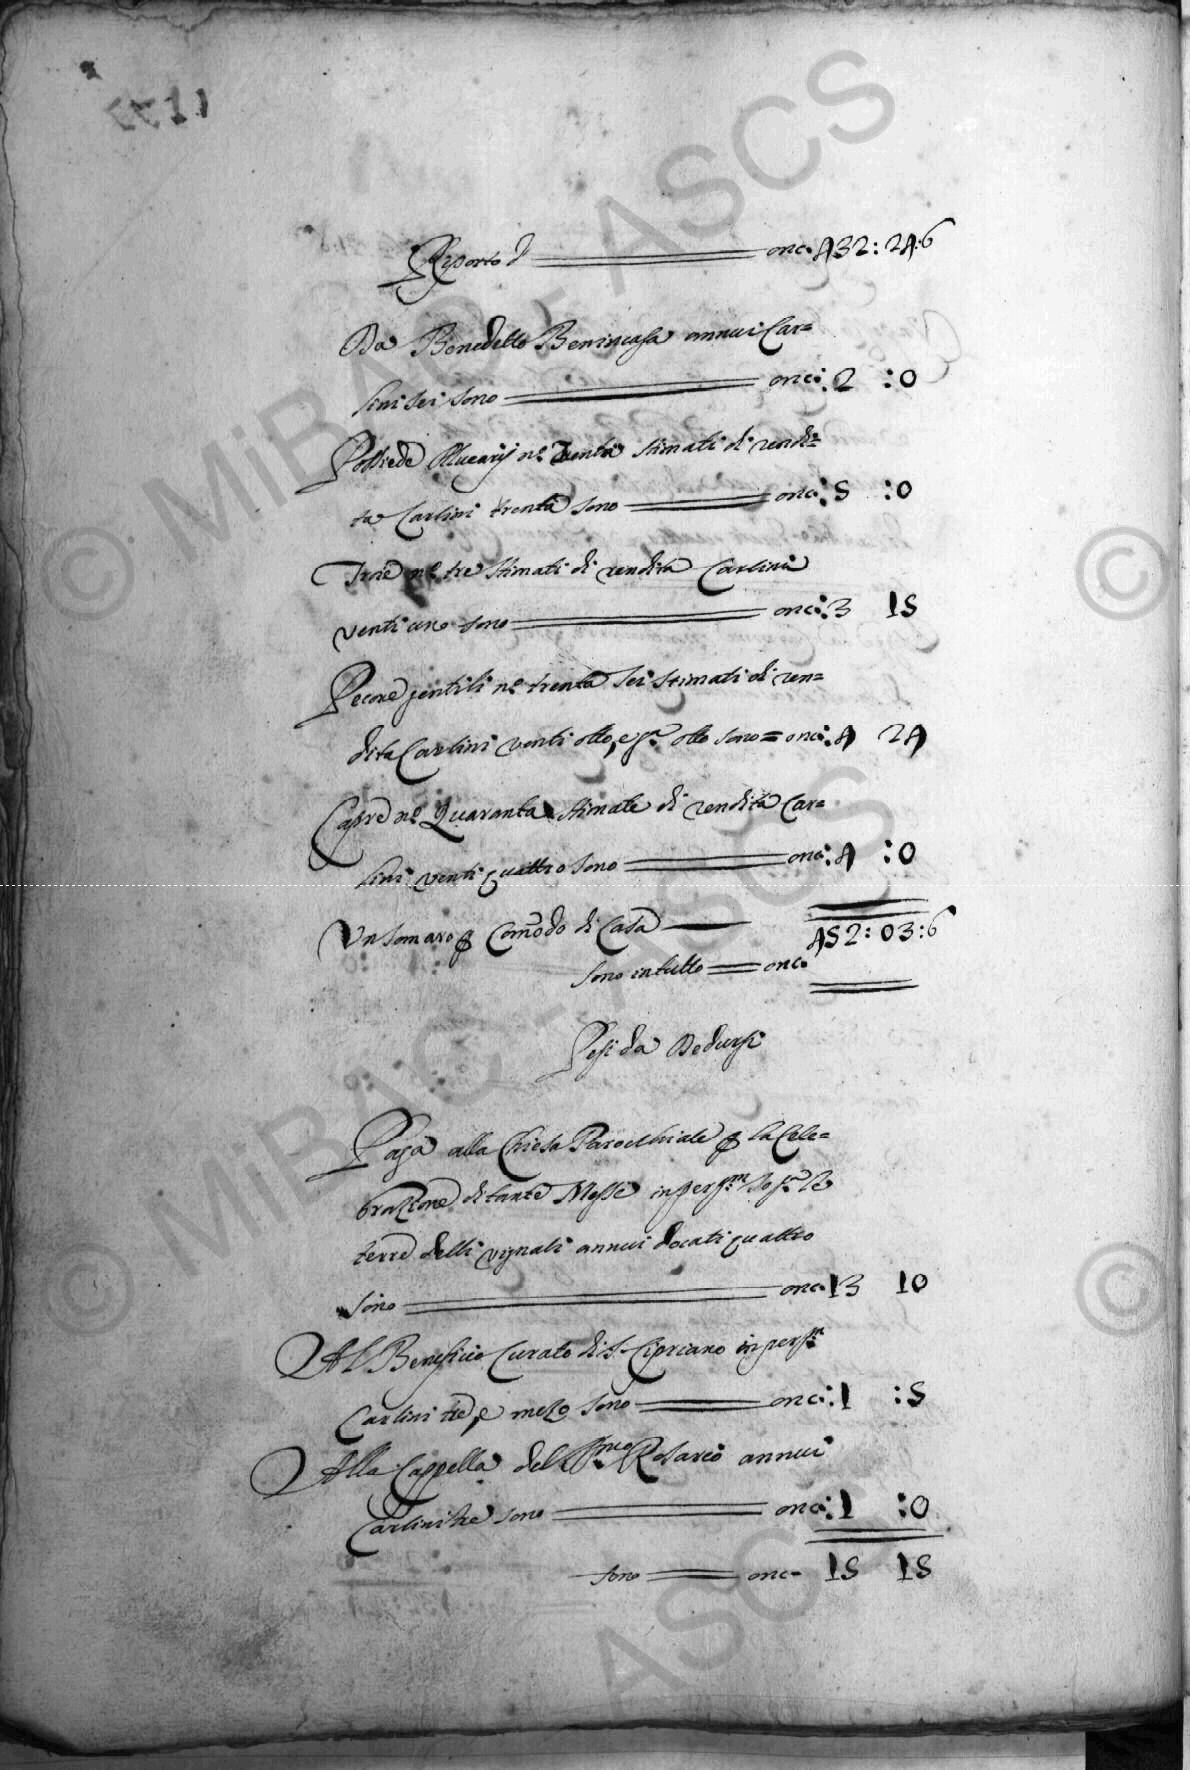 Riporto d onc. 432: 24:6
Da Benedetto Benincasa annui Car=
lini sei sono onc: 2 :0
Possiede Alvearij n.° Trenta stimati di rendi=
ta Carlini trenta sono onc: 5 :0
Troie n.° tre stimati di rendita Carlini
venti uno sono onc: 3 15
Pecore gentili n.° trenta sei stimati di ren=
dita Carlini venti otto, e gr.a otto sono = onc: 4 24
Capre n.° Quaranta stimate di rendita Car=
lini venti quattro sono onc: 4 :0
Un somaro p Comodo di Casa
452: 03:6
sono in tutto onc.
Pesi da Dedursi
Paga alla Chiesa Parocchiale p la Cele=
brazione di tante Messe in perp.m so.pa le
terre delli vignali annui docati quattro
sono onc. 13 10
Al Beneficio Curato di S. Cipriano in perp.m
Carlini tre, e mezo sono onc: 1 :5
Alla Cappella del SS.mo Rosario annui
Carlini tre sono onc: 1 :0
sono onc. 15 15
© MiBAC - ASCS
© MiBAC - ASCS
©
©
ASCS